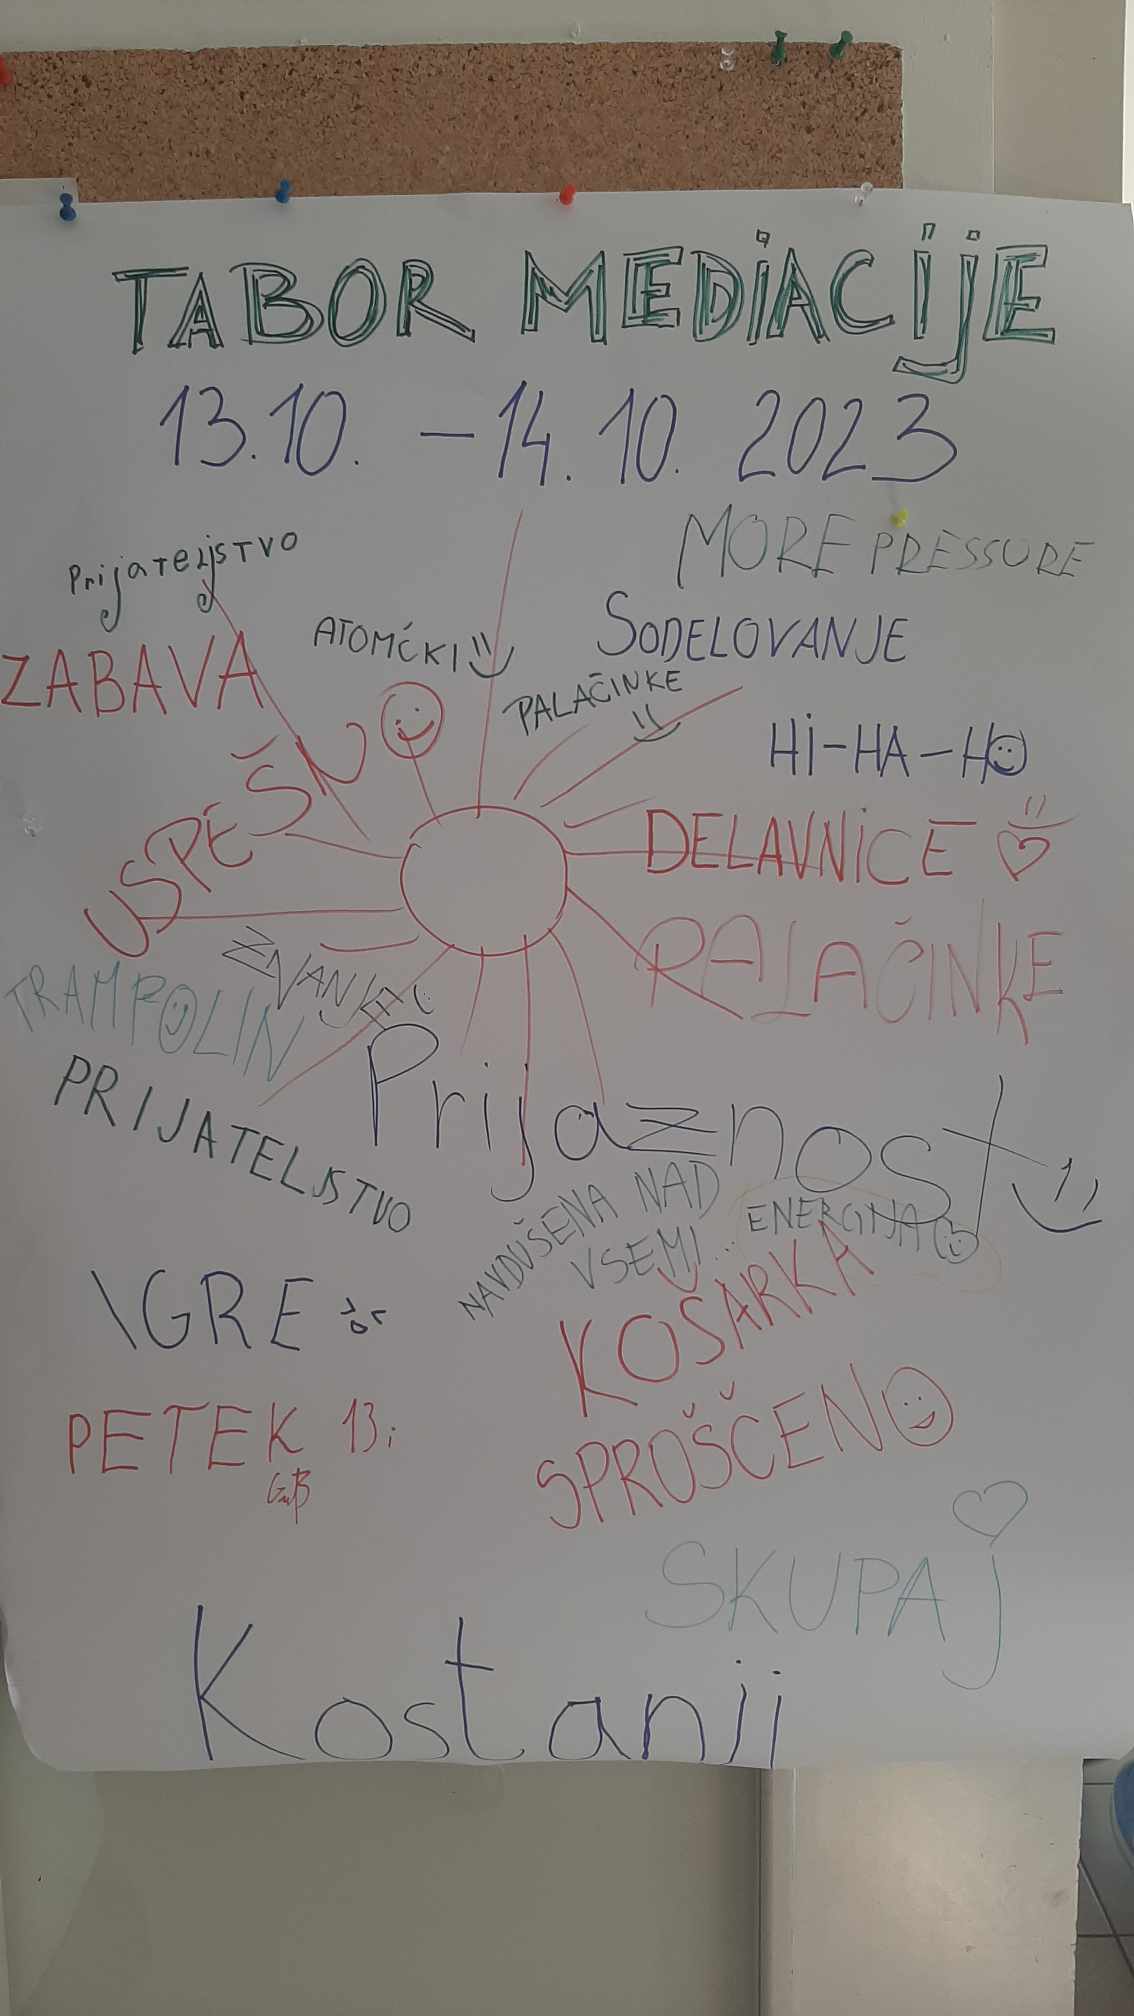 TABOR MEDIACIJE
13.10. – 14.10. 2023
MORE PRESSURE
Prijateljstvo
ATOMČKI
SODELOVANJE
ZABAVA
PALAČINKE
HI-HA-HO
USPEŠNO
DELAVNICE
PALAČINKE
ZNANJE
TRAMPOLIN
Prijaznost
PRIJATELJSTVO
NAVDUŠENA NAD
VSEMI...
ENERGIJA
IGRE
KOŠARKA
PETEK 13.
SPROŠČENO
SKUPAJ
Kostanji